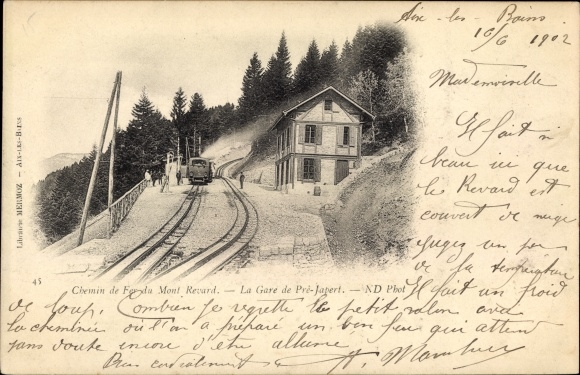 Aix-les-Bains
10/6 1902
Mademoiselle
Il fait si
beau ici que
le Revard est
couvert de neige
Jugez un peu
de la température
Il fait un froid
de loup. Combien je regrette le petit salon avec
la cheminée où l'on a préparé un bon feu qui attend
sans doute encore d'être allumé.
Bien cordialement
Librairie MERMOZ — AIX-LES-BAINS
45
Chemin de Fer du Mont Revard. — La Gare de Pré-Japert. — ND Phot